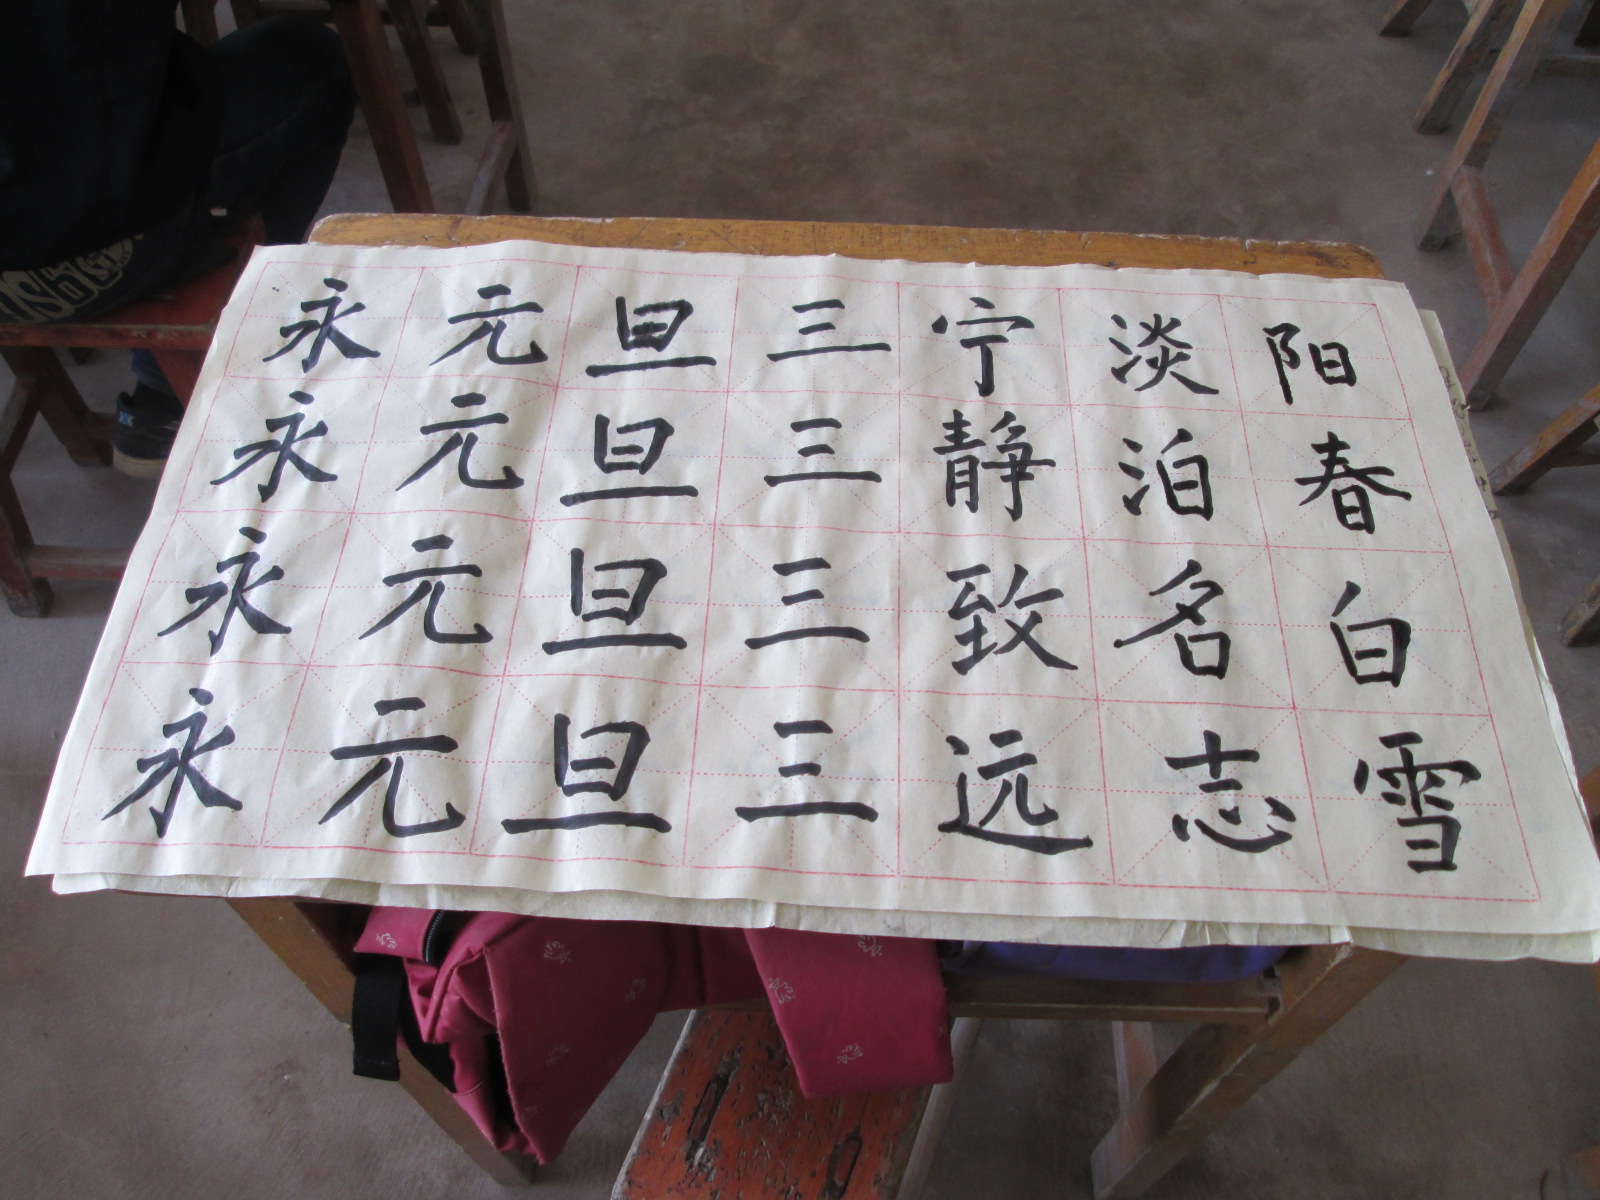 阳春白雪
淡泊名志
宁静致远
三三三三
旦旦旦旦
元元元元
永永永永